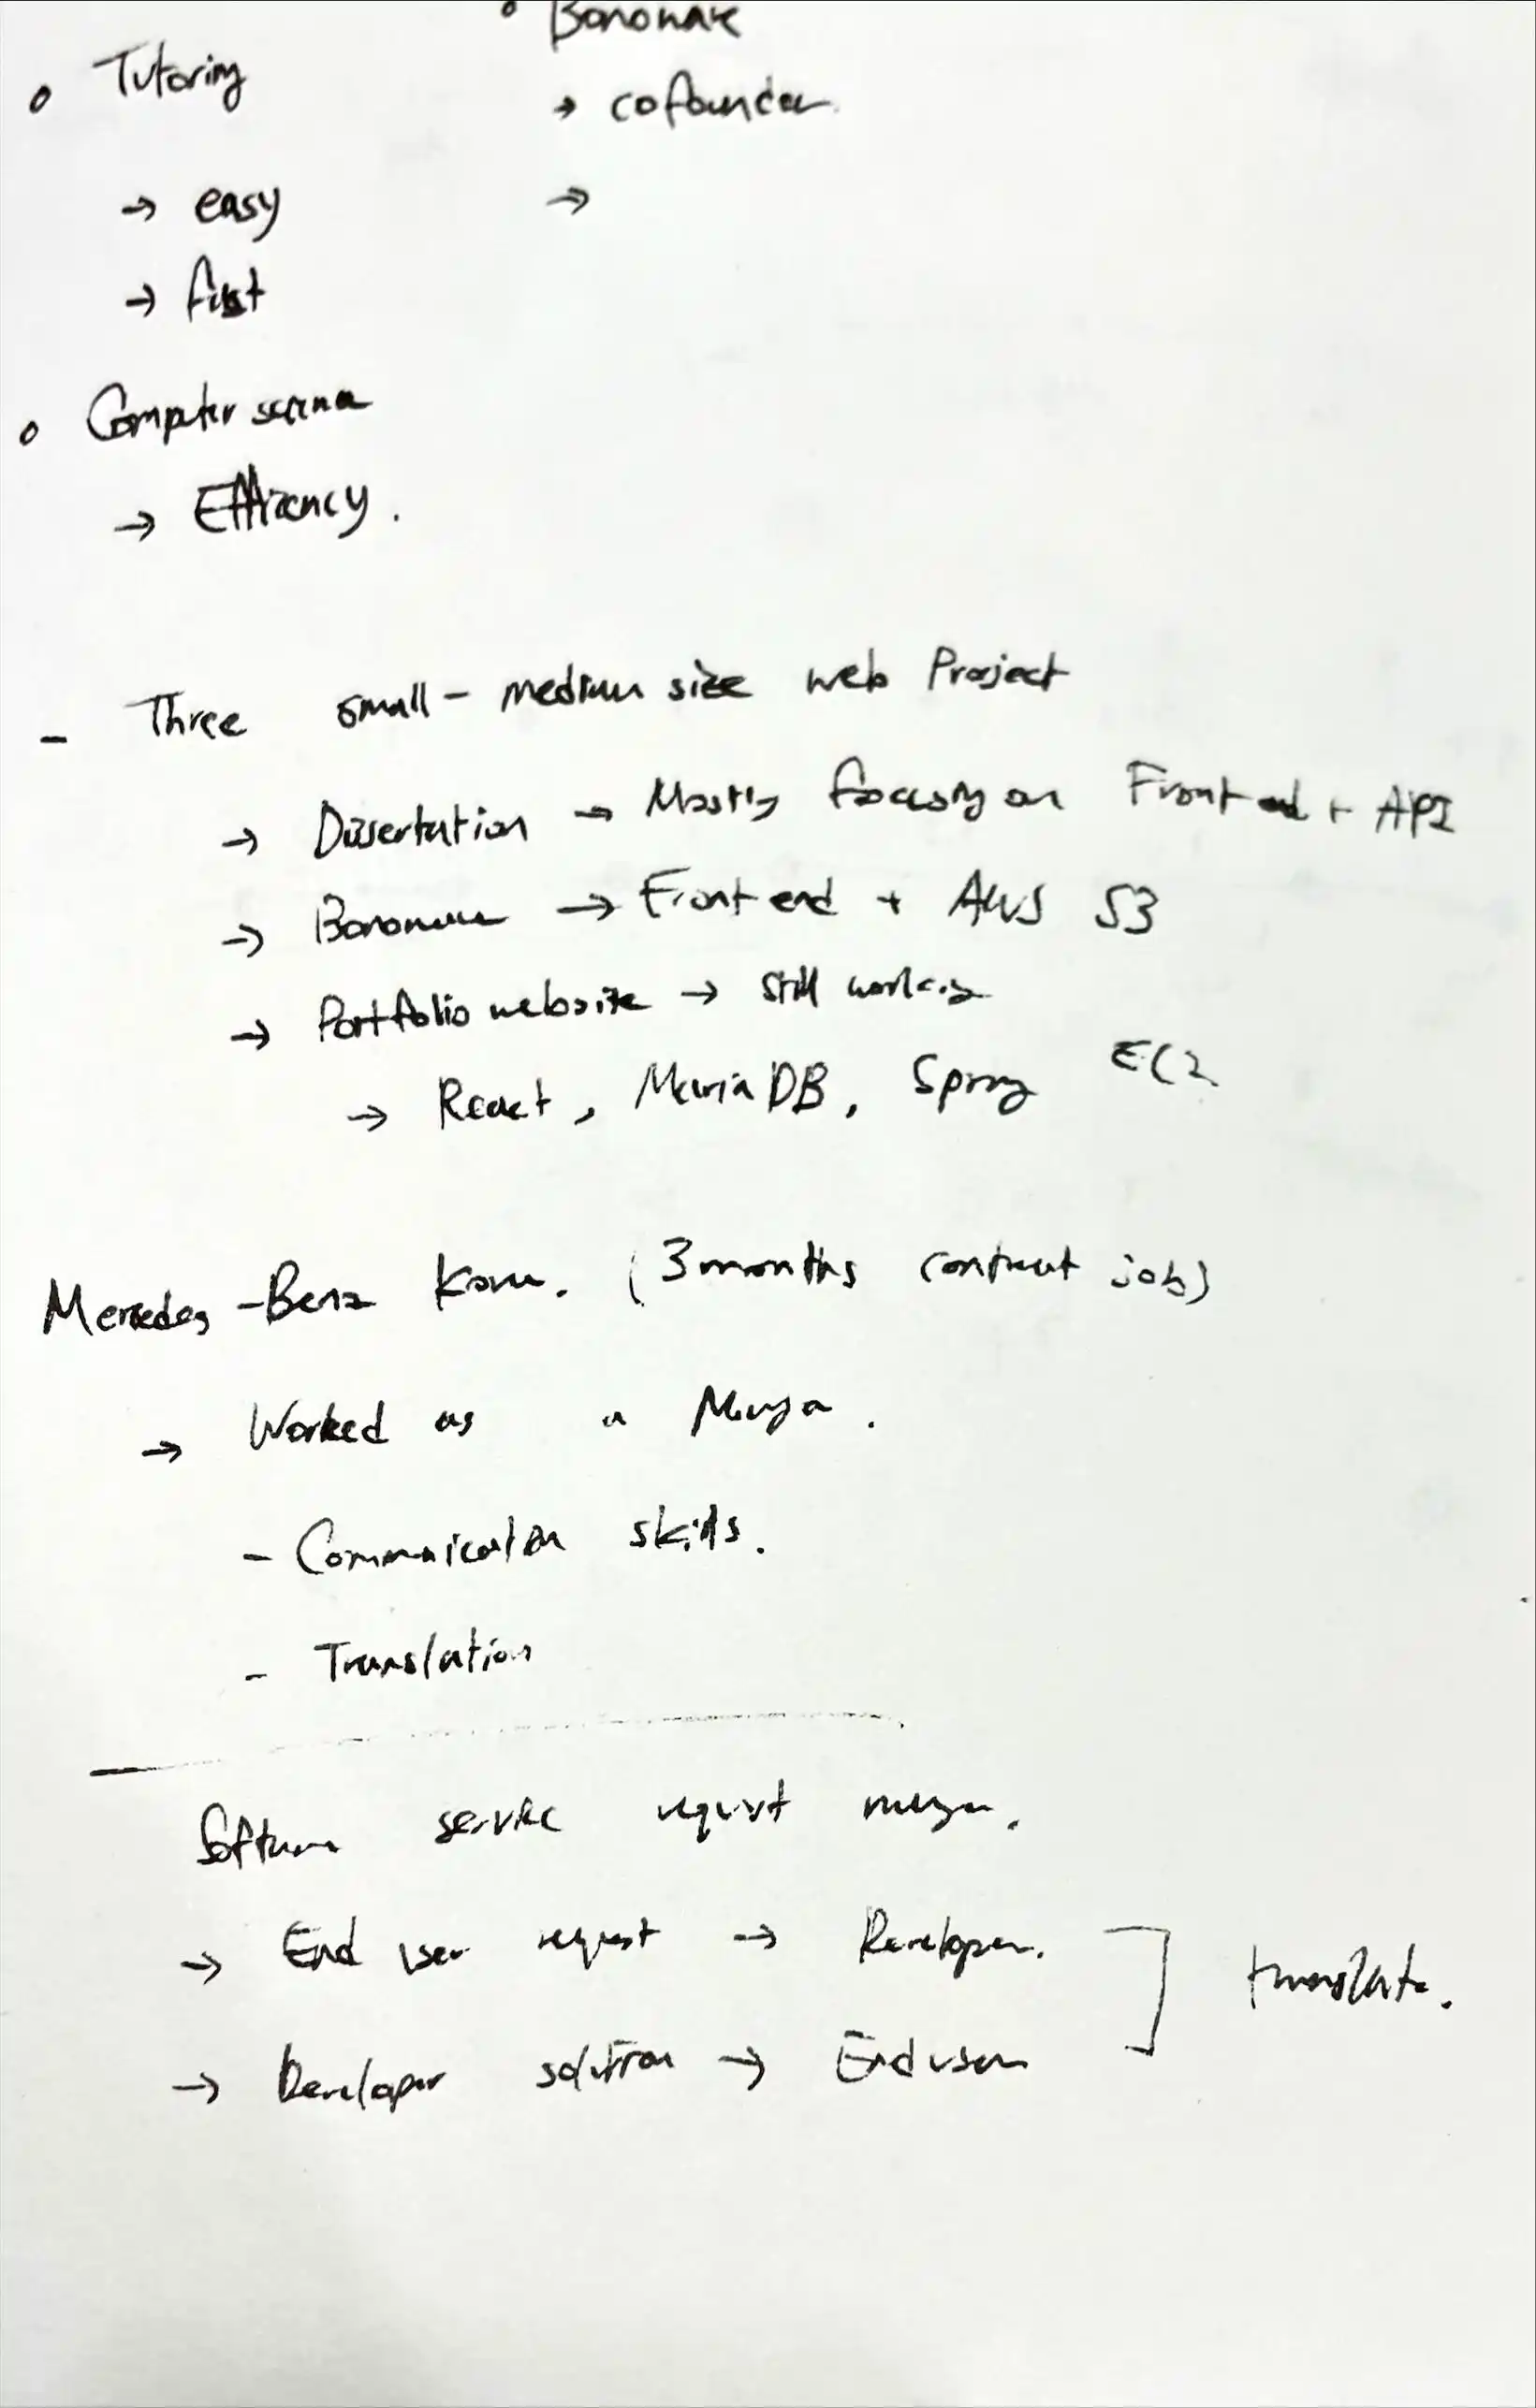 Tutoring
→ easy
→ fast
Computer science
→ Efficency.
→ cofounder
→
- Three small - medium size web Project
→ Dissertation → Mostly focusing on Front end + API
→ → Front end + AWS S3
→ Portfolio website → still working
→ React, Maria DB, Spring EC2
Mercedes-Benz Korea. (3 months contract job)
→ Worked as a
- Communication skills.
- Translation
Software service request
→ End user request → Developer.
→ Developer solution → End user
translate.